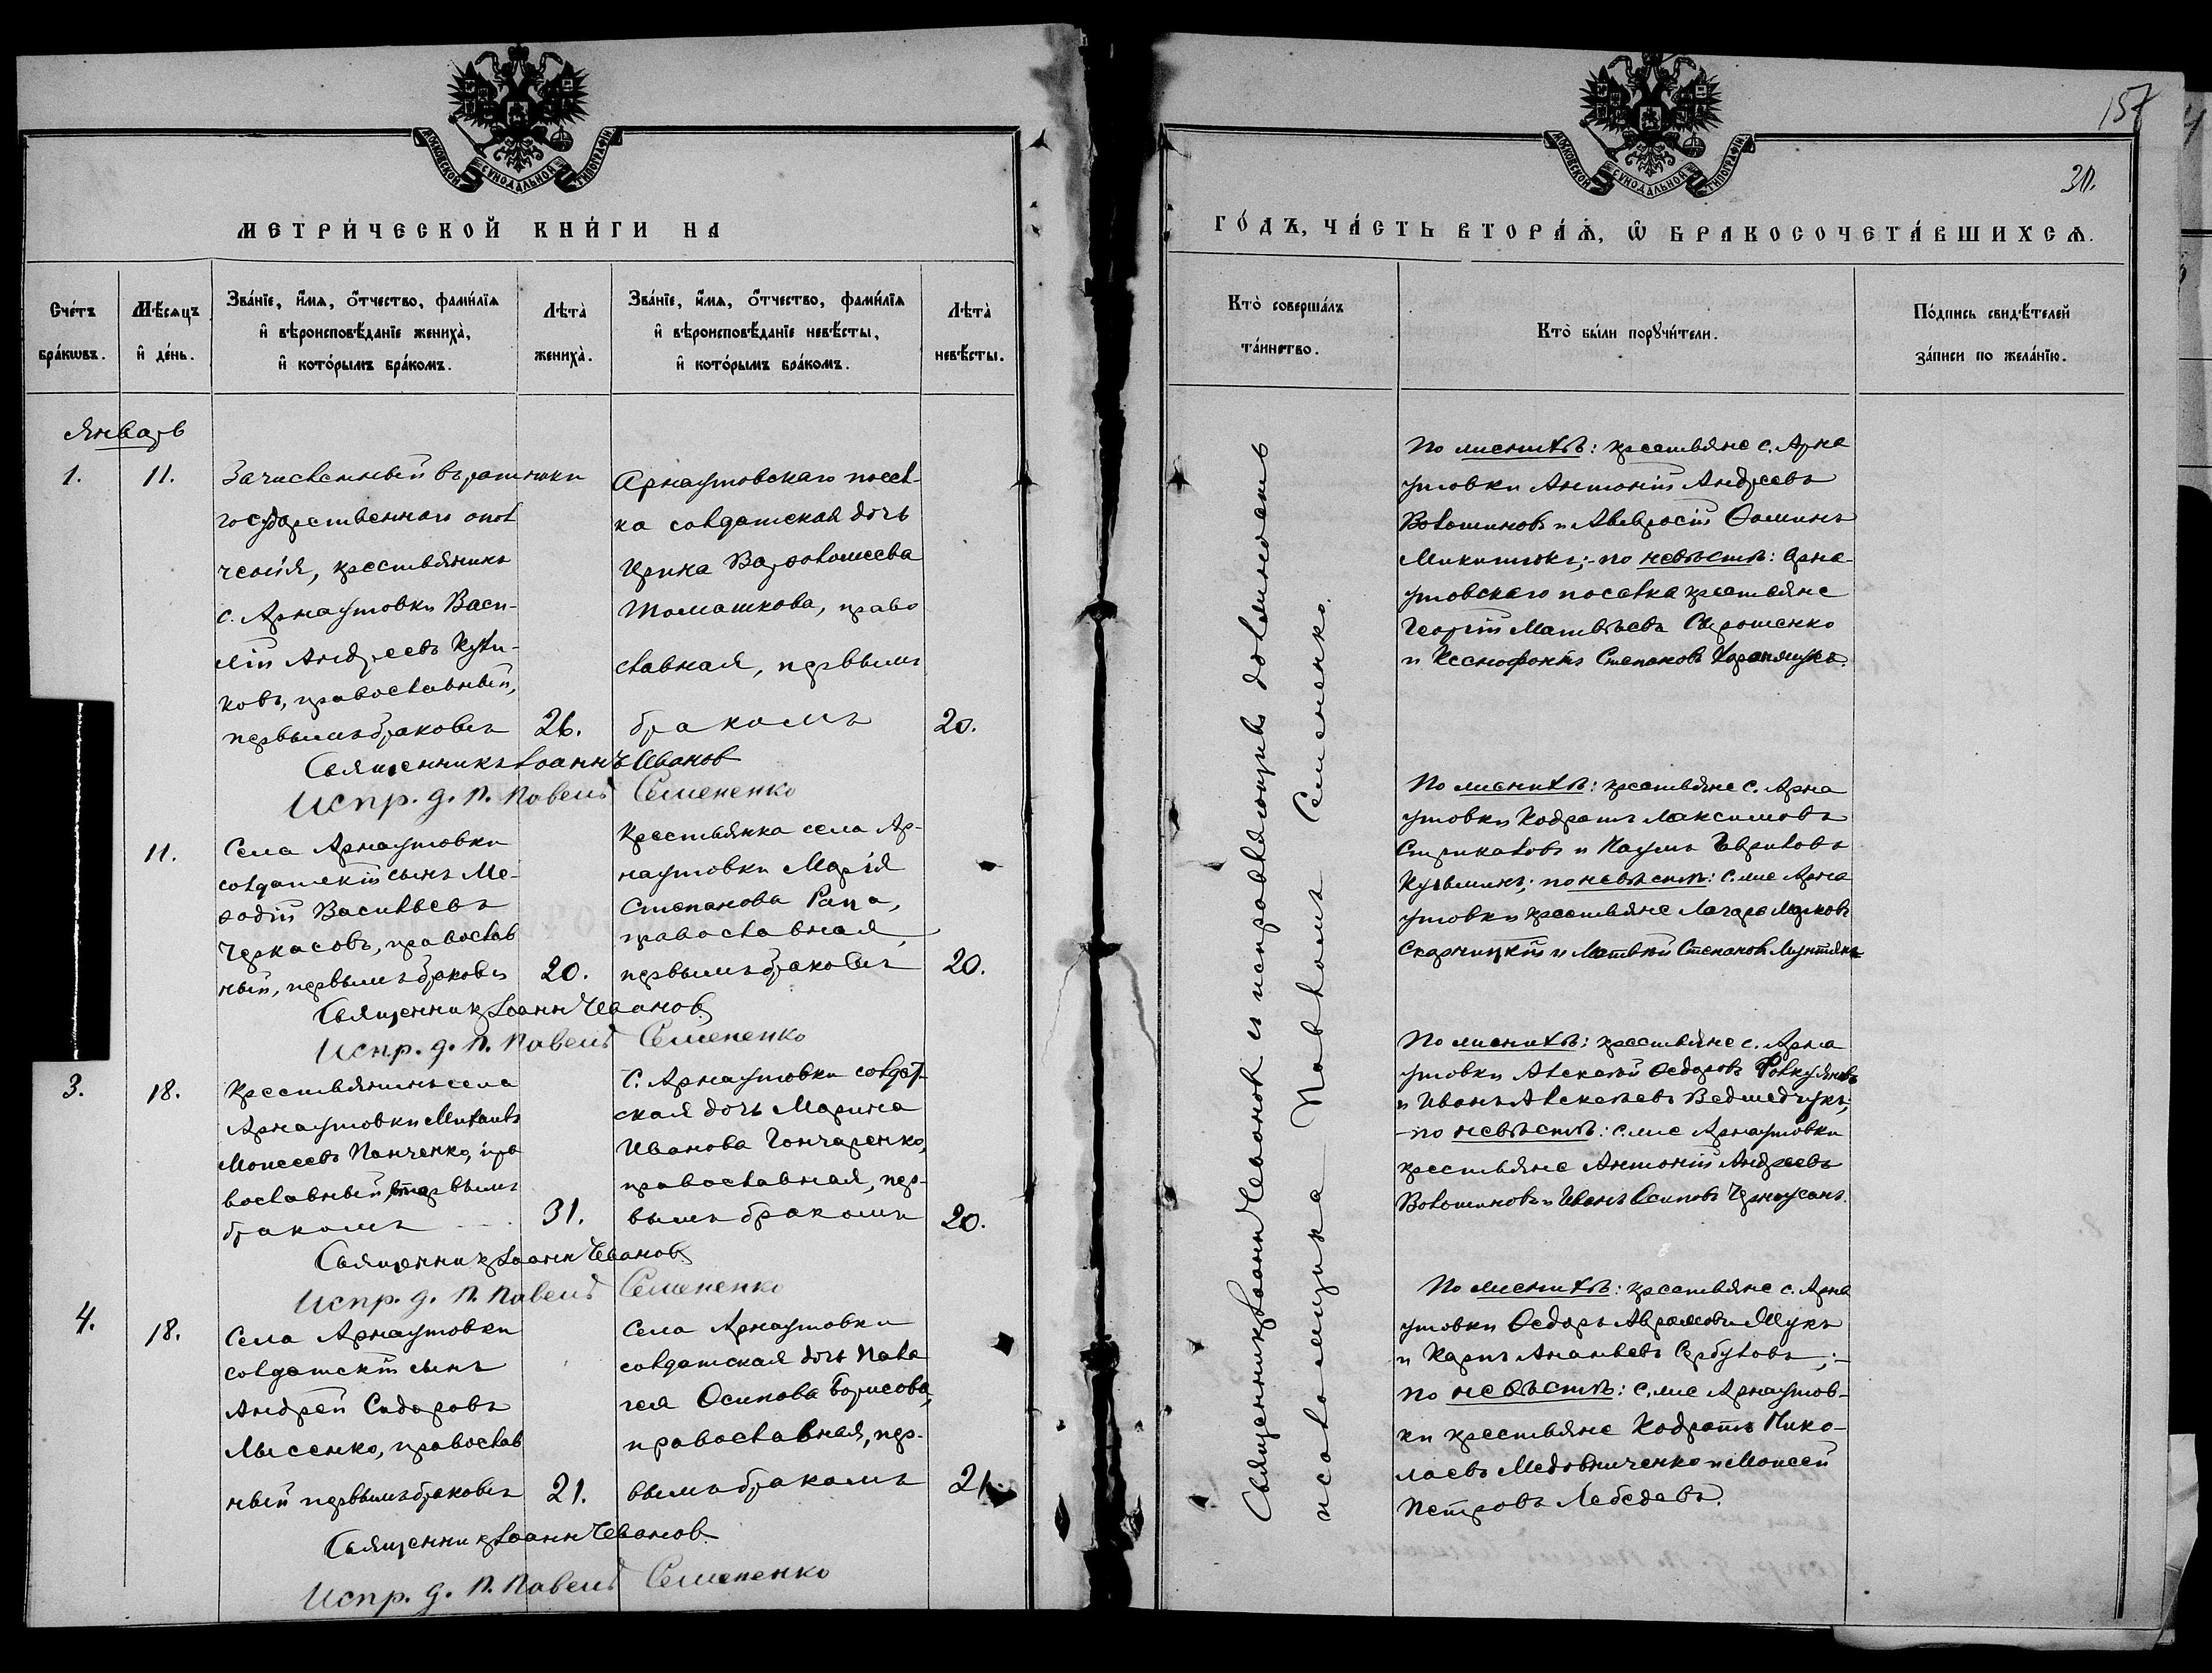 МОСКОВСКОЙ СУНОДАЛЬНОЙ ТИПОГРАФІИ
МЕТРИ́ЧЕСКОЙ КНИ́ГИ НА
Сче́тъ бра́кωвъ.
Мѣ́сяцъ и҆ де́нь.
Зва́нїе, и҆́мя, о҆́тчество, фами́лїя
и҆ вѣроисповѣ́данїе жениха̀,
и҆ кото́рымъ бра́комъ.
Лѣ́та̀ жениха̀.
Зва́нїе, и҆́мя, о҆́тчество, фами́лїя
и҆ вѣроисповѣ́данїе невѣ́сты,
и҆ кото́рымъ бра́комъ.
Лѣ́та̀ невѣ́сты.
Январь
1.
11.
Зачисленный въ ратники
государственнаго опол
ченія, крестьянинъ
с. Арнаутовки Васи-
лій Андреевъ Кули-
ковъ, православный,
первымъ бракомъ
26.
Арнаутовскаго посел-
ка солдатская дочь
Ирина Варѳоломеева
Томашкова, право
славная, первымъ
бракомъ
20.
Священникъ Іоаннъ Чеванов
Испр. д. П. Павелъ Семененко
11.
Села Арнаутовки
солдатскій сынъ Ме-
ѳодій Васильевъ
Черкасовъ, православ
ный, первымъ бракомъ
20.
Крестьянка села Ар-
наутовки Марія
Степанова Рапа,
православная,
первымъ бракомъ
20.
Священникъ Іоанн Чеванов
Испр. д. П. Павелъ Семененко
3.
18.
Крестьянинъ села
Арнаутовки Михаилъ
Моисеевъ Панченко, пра
вославный, вторымъ
бракомъ
31.
С. Арнаутовки солдат-
ская дочь Марина
Иванова Гончаренко,
православная, пер-
вымъ бракомъ
20.
Священникъ Іоанн Чеванов
Испр. д. П. Павелъ Семененко
4.
18.
Села Арнаутовки
солдатскій сынъ
Андрей Сидоровъ
Лысенко, православ
ный первымъ бракомъ
21.
Села Арнаутовки
солдатская дочь Пела
гея Осипова Борисова,
православная, пер-
вымъ бракомъ
21.
Священникъ Іоанн Чеванов
Испр. д. П. Павелъ Семененко
157
МОСКОВСКОЙ СУНОДАЛЬНОЙ ТИПОГРАФІИ
30.
ГО́ДЪ, ЧА́СТЬ ВТОРА́Ѧ, Ѽ БРАКОСОЧЕТА́ВШИХСѦ.
Кто̀ соверша́лъ
та́инство.
Кто̀ бы́ли порꙋчи́тели.
По́дпись свидѣ́телей
за́писи по жела́нїю.
Священникъ Іоанн Чеванов съ исправляющимъ должность
псаломщика Павломъ Семененко.
По женихѣ: крестьяне с. Арна
утовки Антоній Андреевъ
Волошиновъ и Амвросій Ѳоминъ
Микитюкъ; - по невѣстѣ: Арна-
утовскаго поселка крестьяне
Георгій Матвѣевъ Сирошенко
и Ксенофонтъ Степановъ
По женихѣ: крестьяне с. Арна
утовки Кодратъ Максимовъ
Стрикаловъ и Наумъ Гавриловъ
Кузьминъ; по невѣстѣ: с. мне Арна
утовки крестьяне Лазарь Марковъ
и Матвѣй Степановъ
По женихѣ: крестьяне с. Арна
утовки Алексѣй Ѳедоровъ
и Иванъ Алексѣевъ Ведмедчукъ;
- по невѣстѣ: с. мне Арнаутовки
крестьяне Антоній Андреевъ
Волошиновъ и Иванъ Осиповъ
По женихѣ: крестьяне с. Арна
утовки Ѳедоръ Аврамовъ Щукъ
и Карпъ Ананьевъ Сербуловъ; -
по невѣстѣ: с. мне Арнаутов-
ки крестьяне Кодратъ Нико-
лаевъ Медовниченко и Моисей
Петровъ Лебедевъ.